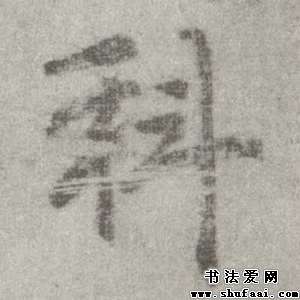 科
书法爱网
www.shufaai.com